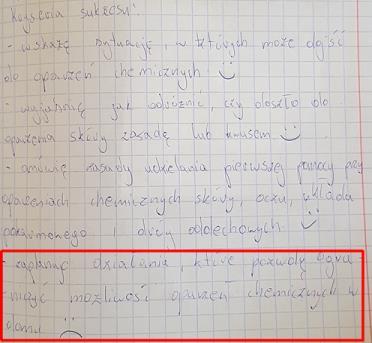 Kryteria sukcesu:
- wskażę sytuacje, w których może dojść
do oparzeń chemicznych
- wyjaśnię jak odróżnić, czy doszło do
oparzenia skóry zasadą lub kwasem
- omówię zasady udzielania pierwszej pomocy przy
oparzeniach chemicznych skóry, oczu, układu
pokarmowego i dróg oddechowych
- zaplanuję działania, które pozwolą ogra-
niczyć możliwość oparzeń chemicznych w
domu